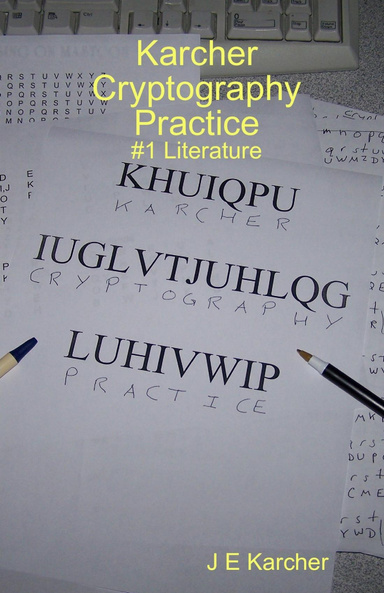 Karcher
Cryptography
Practice
#1 Literature
KHUIQPU
KARCHER
IUGLVTJUHLQG
CRYPTOGRAPHY
LUHIVWIP
PRACTICE
J E Karcher